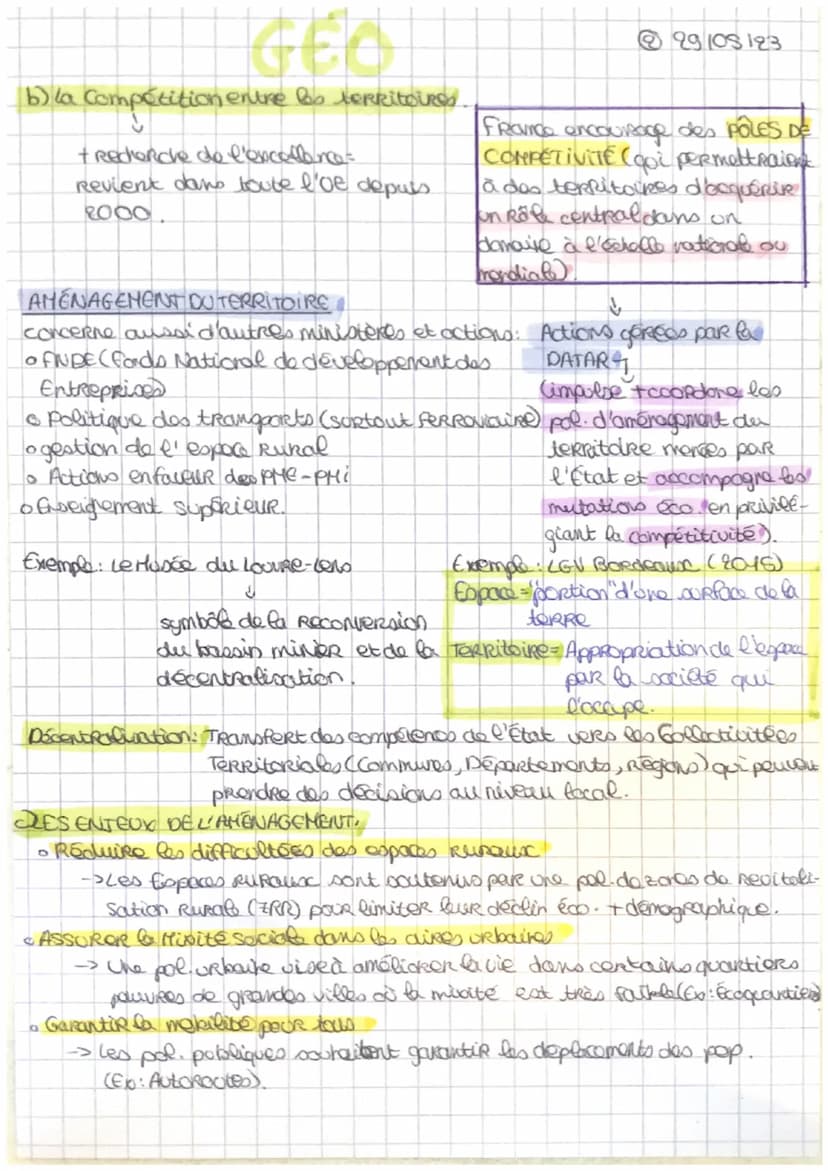 GÉO
② 29/05/23
b) La Compétition entre les territoires.
↓
+ recherche de l'excellence =
Revient dans toute l'UE depuis
2000.
France encourage des PÔLES DE
COMPÉTIVITÉ (qui permettraient
à des territoires d'acquérir
un Rôle central dans un
domaine à l'échelle nationale ou
mondiale).
↓
AMÉNAGEMENT DU TERRITOIRE
concerne aussi d'autres ministères et actions:
o FNDE (Fonds National de développement des
Entreprises)
o Politique des transports (surtout ferroviaire)
o gestion de l'espace Rural
o Actions en faveur des PME-PMi
o Enseignement supérieur.
Actions gérées par la
DATAR
(impulse + coordone les
pol. d'aménagement du
territoire menées par
l'État et accompagne les
mutations éco. en privilé-
giant la compétitivité).
Exemple: Le Musée du Louvre-Lens
↓
symbole de la Reconversion
du bassin minier et de la
décentralisation.
Exemple: LGV Bordeaux (2015)
Espace = "portion" d'une surface de la
terre
Territoire = Appropriation de l'espace
par la société qui
l'occupe.
Décentralisation: Transfert des compétences de l'État vers les Collectivités
Territoriales (Communes, Départements, régions) qui peuvent
prendre des décisions au niveau local.
c) LES ENJEUX DE L'AMÉNAGEMENT.
o Réduire les difficultées des espaces Ruraux
-> Les Espaces Ruraux sont soutenus par une pol. de zones de Revitali-
sation Rurale (ZRR) pour limiter leur déclin éco. + démographique.
o ASSURER la Mixité sociale dans les aires urbaines
-> Une pol. urbaine vise à améliorer la vie dans certains quartiers
pauvres de grandes villes où la mixité est très faible (Ex: Écoquartiers)
o Garantir la mobilité pour tous
-> Les pol. publiques souhaitent garantir les déplacements des pop.
(Ex: Autoroutes).